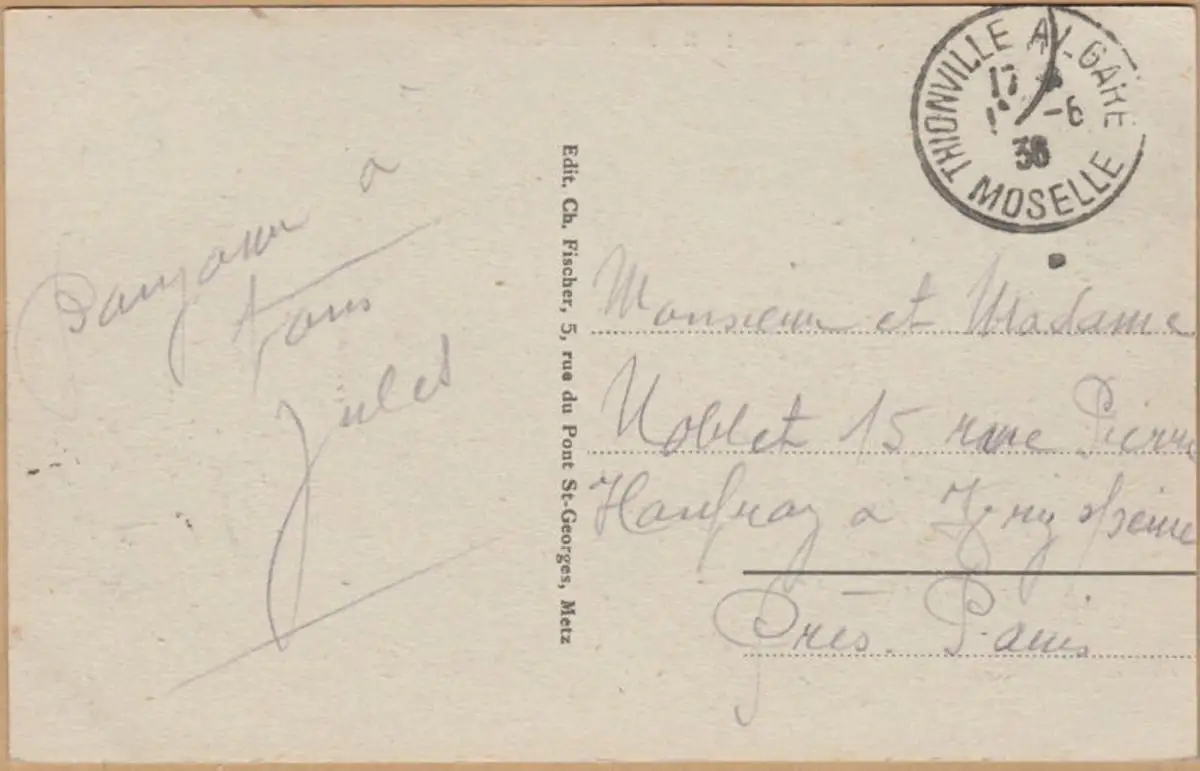 Bonjour à
tous
Jules
Edit. Ch. Fischer, 5, rue du Pont St-Georges, Metz
THIONVILLE A LGARE
-6
36
MOSELLE
Monsieur et Madame
Noblet 15 rue Pierre
a Seine
Près. Paris